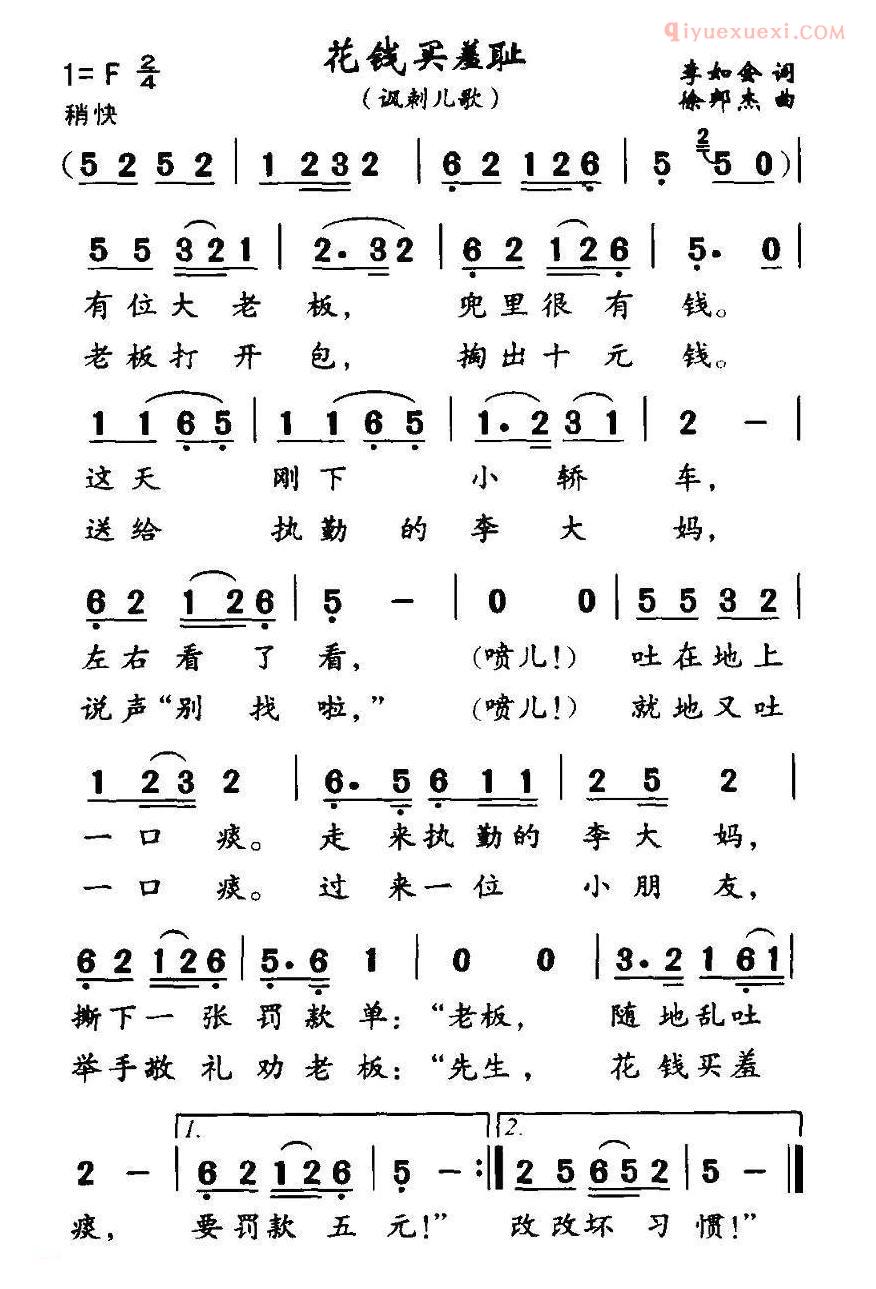 qiyuexuexi.com
花钱买羞耻
1=F 2/4
李如会 词
（讽刺儿歌）
徐邦杰 曲
稍快
（5 2 5 2 | 1 2 3 2 | 6 2 1 2 6 | 5 2 5 0）|
5 5 3 2 1 | 2· 3 2 | 6 2 1 2 6 | 5· 0 |
有位大老板，兜里很有钱。
老板打开包，掏出十元钱。
1 1 6 5 | 1 1 6 5 | 1· 2 3 1 | 2 － |
这天刚下小轿车，
送给执勤的李大妈，
6 2 1 2 6 | 5 － | 0 0 | 5 5 3 2 |
左右看了看，（喷儿！）吐在地上
说声“别找啦，”（喷儿！）就地又吐
1 2 3 2 | 6· 5 6 1 1 | 2 5 2 |
一口痰。走来执勤的李大妈，
一口痰。过来一位小朋友，
6 2 1 2 6 | 5· 6 1 | 0 0 | 3· 2 1 6 1 |
撕下一张罚款单：“老板，随地乱吐
举手敬礼劝老板：“先生，花钱买羞
1. 2.
2 － | 6 2 1 2 6 | 5 － :| 2 5 6 5 2 | 5 － ‖
痰，要罚款五元！”改改坏习惯！”